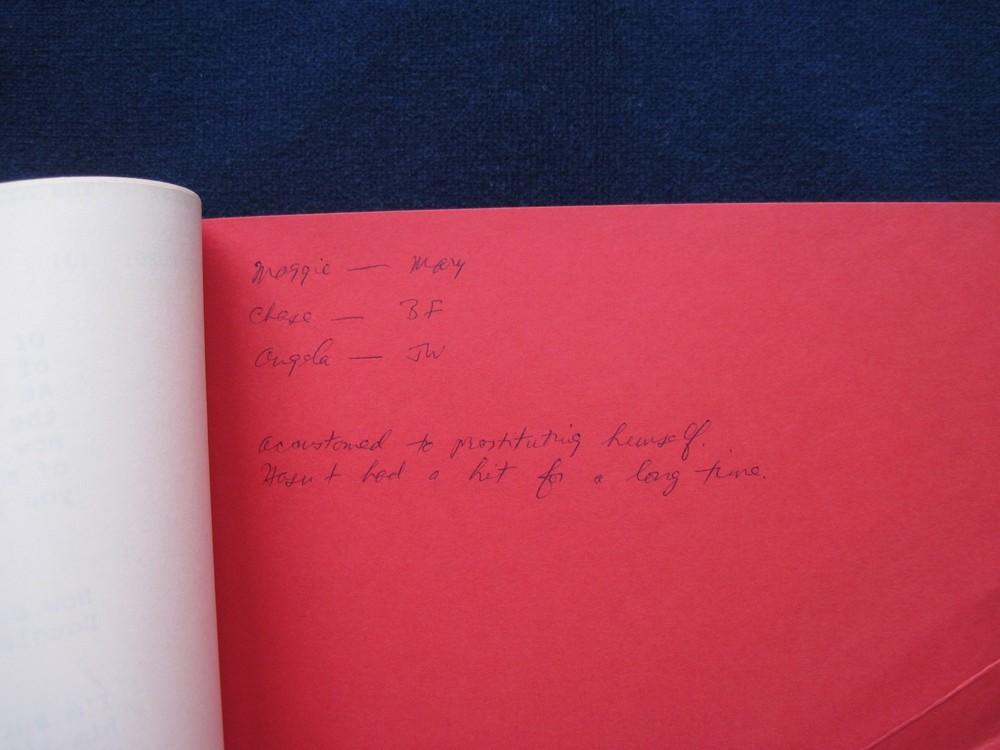 Maggie — Mary
Chase — BF
Angela — JW
acoustomed to prostituting himself.
Hasn't had a hit for a long time.